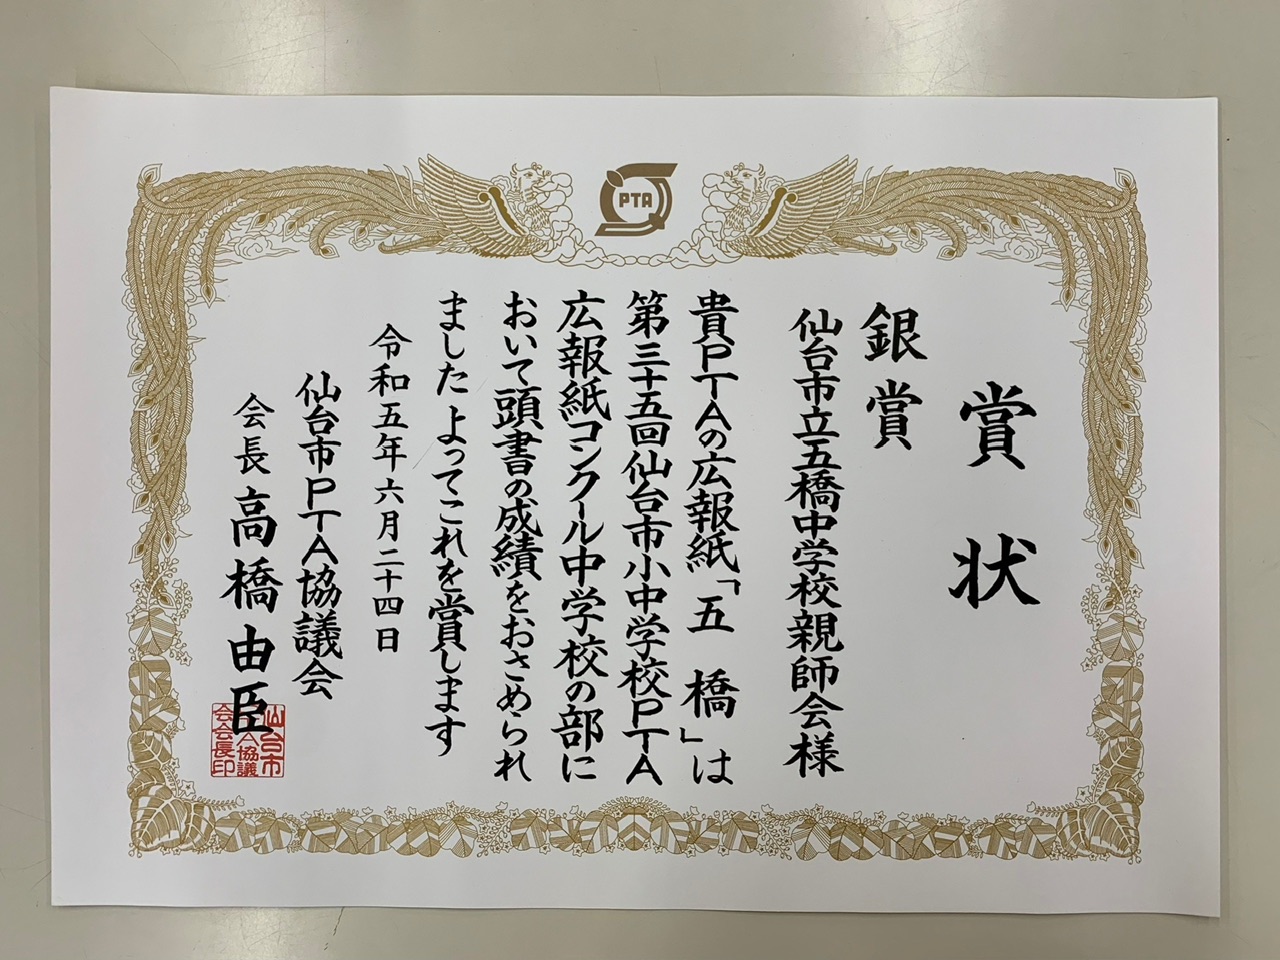 PTA
賞状
銀賞
仙台市立五橋中学校親師会様
貴PTAの広報紙「五 橋」は
第三十五回仙台市小中学校PTA
広報紙コンクール中学校の部に
おいて頭書の成績をおさめられ
ました よってこれを賞します
令和五年六月二十四日
仙台市PTA協議会
会長 高橋由臣
仙台市
PTA協議
会会長印